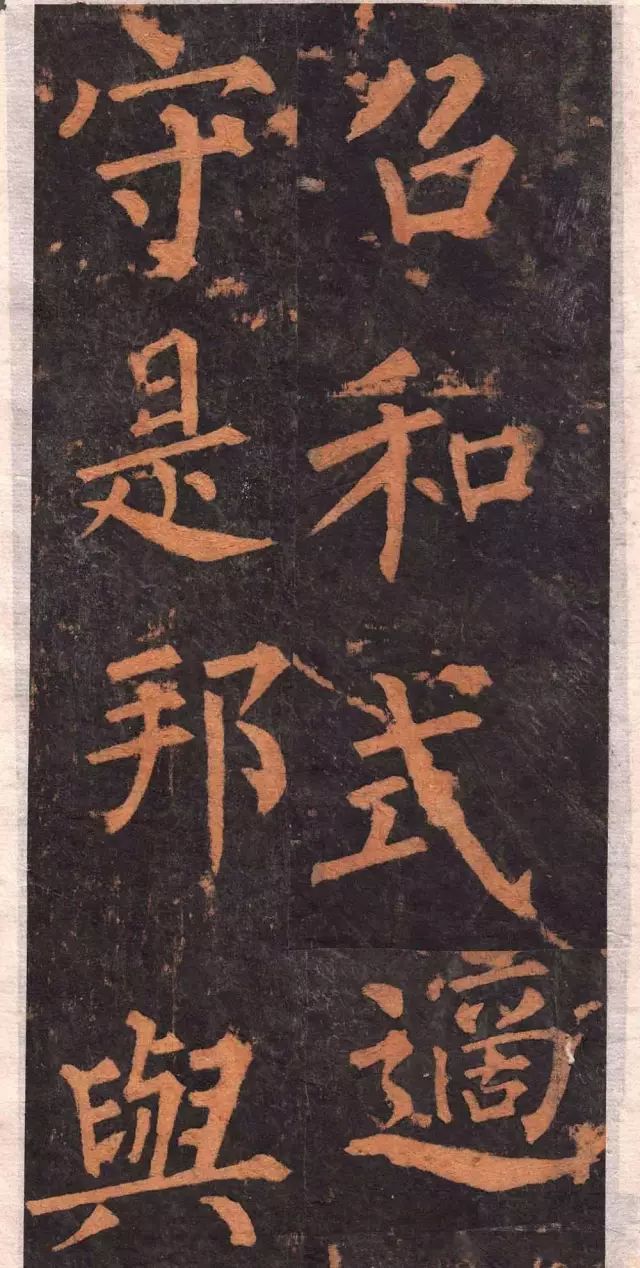 召和式適
守是邦與